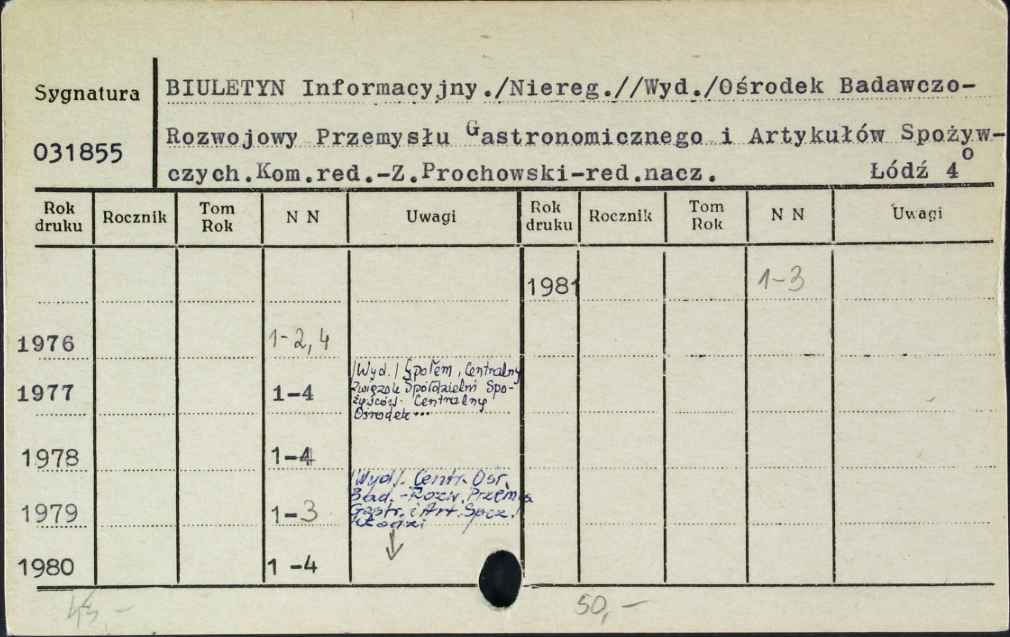 Sygnatura
031855
BIULETYN Informacyjny./Niereg.//Wyd./Ośrodek Badawczo-
Rozwojowy Przemysłu Gastronomicznego i Artykułów Spożyw-
czych.Kom.red.-Z.Prochowski-red.nacz. Łódź 4°
Rok druku Rocznik Tom Rok N N Uwagi Rok druku Rocznik Tom Rok N N Uwagi
1981 1-3
1976 1-2, 4
1977 1-4
/Wyd./ Społem, Centralny
Związek Spółdzielni Spo-
żywców. Centralny
Ośrodek...
1978 1-4
/Wyd/. Centr. Ośr.
Bad.-Rozw. Przem.
Gastr. i Art. Spoż.
1979 1-3
1980 1-4
50,-